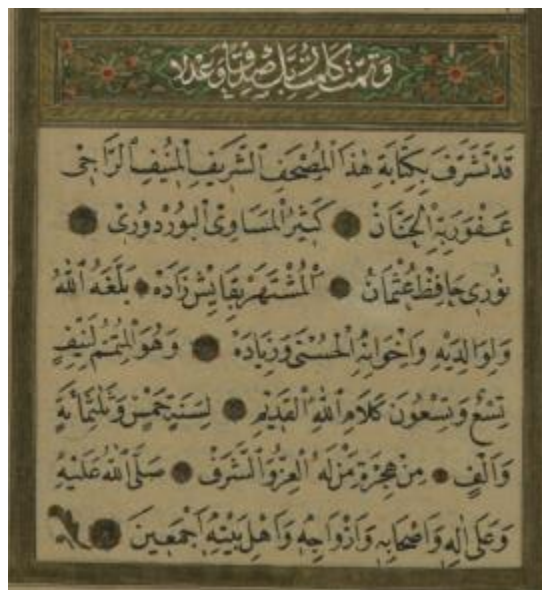 وَتَمَّتْ كَلِمَتُ رَبِّكَ صِدْقًا وَعَدْلًا
قَدْ تَشَرَّفَ بِكِتَابَةِ هٰذَا الْمُصْحَفِ الشَّرِيفِ الْمُنِيفِ الرَّاجِى
عَفْوَ رَبِّهِ الْحَنَّانْ كَثِيرُ الْمَسَاوِى الْبُورْدُورِىْ
نُورِى حَافِظْ عُثْمَانُ الْمُشْتَهَرْ بِقَايِشْ زَادَهْ بَلَغَهُ اللّٰهُ
وَلِوَالِدَيْهِ وَاِخْوَانِهِ الْحُسْنٰى وَزِيَادَهْ وَهُوَ الْمُتَمِّمُ لِنَيِّفٍ
تِسْعٌ وَتِسْعُونَ كَلَامِ اللّٰهِ الْقَدِيمِ لِسَنَةِ خَمْسٍ وَثَلٰثُمِائَةٍ
وَاَلْفٍ مِنْ هِجْرَةِ مَنْ لَهُ الْعِزُّ وَالشَّرَفْ صَلَّى اللّٰهُ عَلَيْهِ
وَعَلٰى اٰلِهِ وَاَصْحَابِهِ وَاَزْوَاجِهِ وَاَهْلِ بَيْتِهِ اَجْمَعِينَ